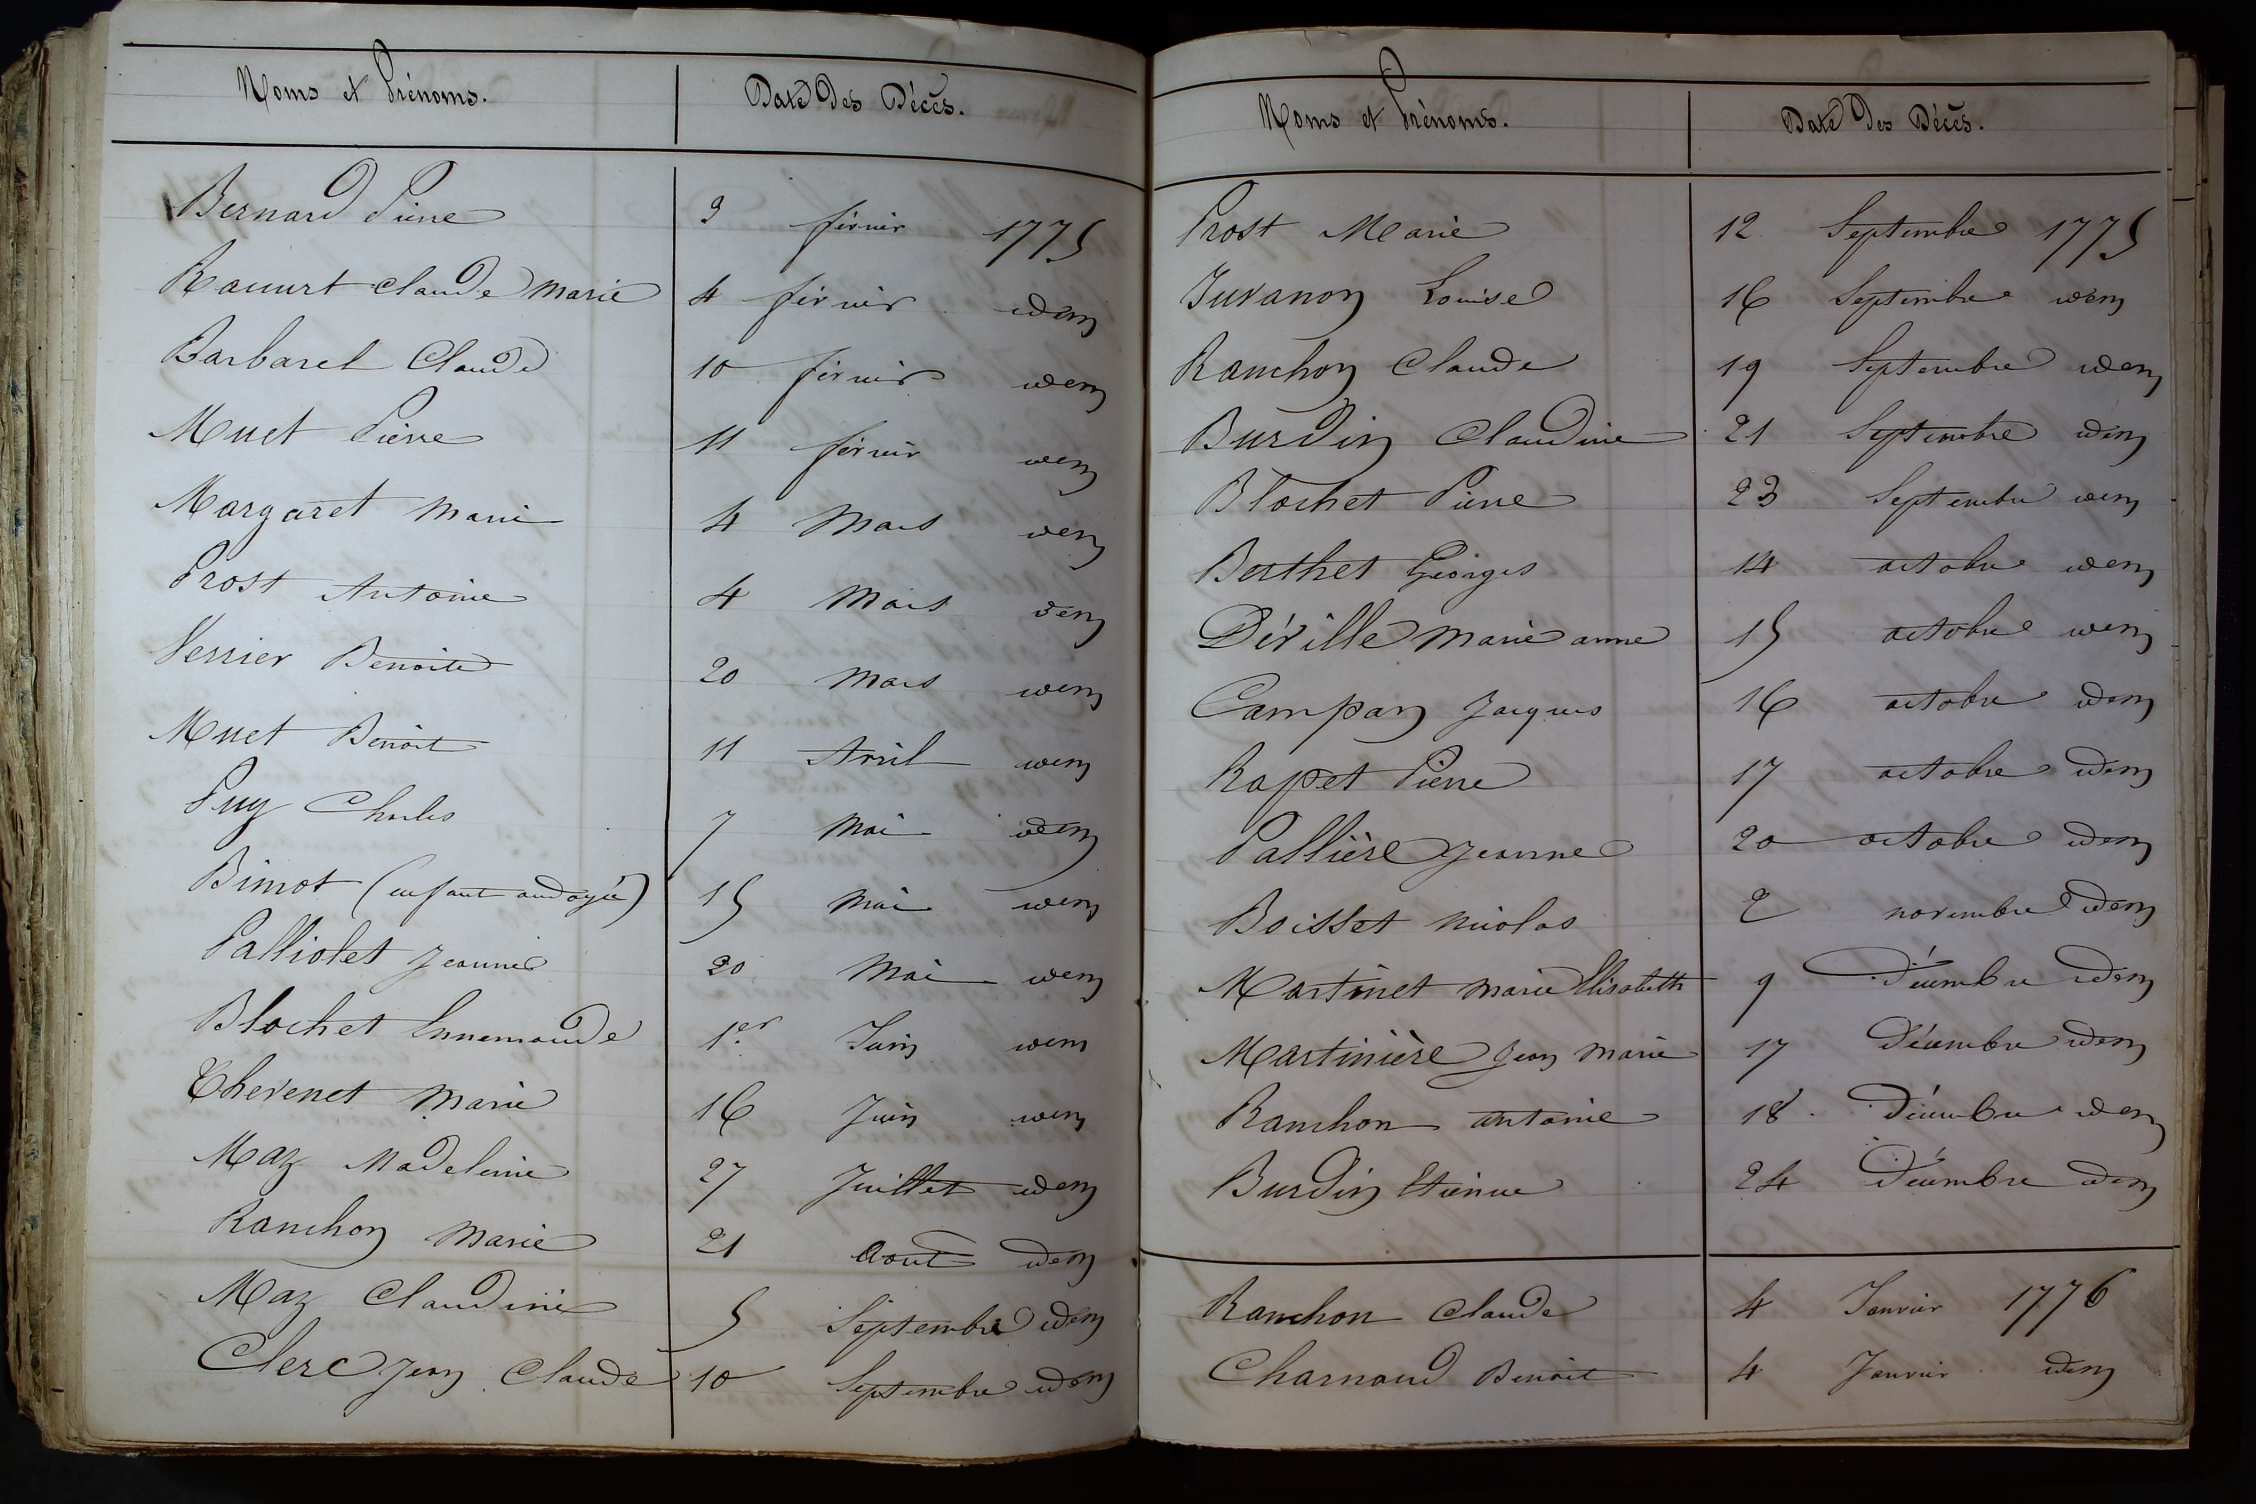 Noms et Prénoms. Date des Décès.
Bernard Pierre 3 février 1775
Racurt Claude Marie 4 février idem
Barbaret Claude 10 février idem
Muet Pierre 11 février idem
Margaret Marie 4 Mars idem
Prost Antoine 4 Mars idem
Verrier Benoite 20 Mars idem
Muet Benoit 11 Avril idem
Puy Charles 7 Mai idem
Bimot (enfant ondoyé) 15 Mai idem
Palliolet Jeanne 20 Mai idem
Blochet Ennemonde 1er Juin idem
Thevenet Marie 16 Juin idem
Maz Madeleine 27 Juillet idem
Ranchon Marie 21 Aout idem
Maz Claudine 5 Septembre idem
Clerc Jean Claude 10 Septembre idem
Noms et Prénoms. Date des Décès.
Prost Marie 12 Septembre 1775
Juvanon Louise 16 Septembre idem
Ranchon Claude 19 Septembre idem
Burdin Claudine 21 Septembre idem
Blochet Pierre 23 Septembre idem
Berthet Georges 14 octobre idem
Déville Marie anne 15 octobre idem
Campan Jacques 16 octobre idem
Rapet Pierre 17 octobre idem
Pallière Jeanne 20 octobre idem
Boisset Nicolas 2 novembre idem
Martinet Marie Elisabeth 9 Décembre idem
Martinière Jean Marie 17 Décembre idem
Ranchon antoine 18 Décembre idem
Burdin Etienne 24 Décembre idem
Ranchon Claude 4 Janvier 1776
Charnaud Benoit 4 Janvier idem